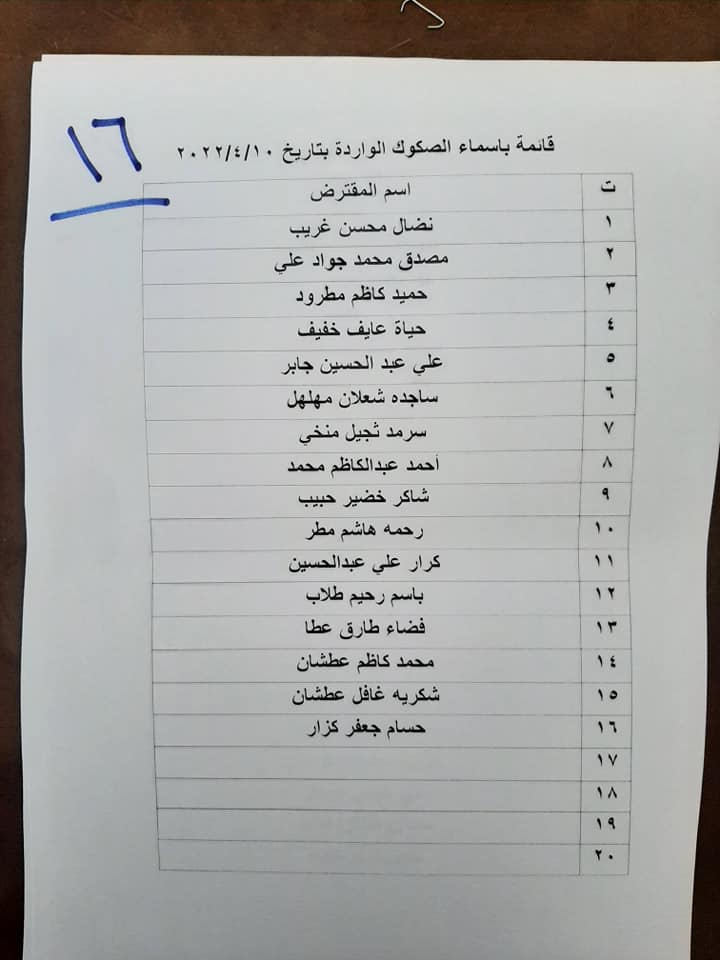 ١٦
قائمة باسماء الصكوك الواردة بتاريخ ٢٠٢٢/٤/١٠
ت اسم المقترض
١ نضال محسن غريب
٢ مصدق محمد جواد علي
٣ حميد كاظم مطرود
٤ حياة عايف خفيف
٥ علي عبد الحسين جابر
٦ ساجده شعلان مهلهل
٧ سرمد ثجيل منخي
٨ أحمد عبدالكاظم محمد
٩ شاكر خضير حبيب
١٠ رحمه هاشم مطر
١١ كرار علي عبدالحسين
١٢ باسم رحيم طلاب
١٣ فضاء طارق عطا
١٤ محمد كاظم عطشان
١٥ شكريه غافل عطشان
١٦ حسام جعفر كزار
١٧
١٨
١٩
٢٠